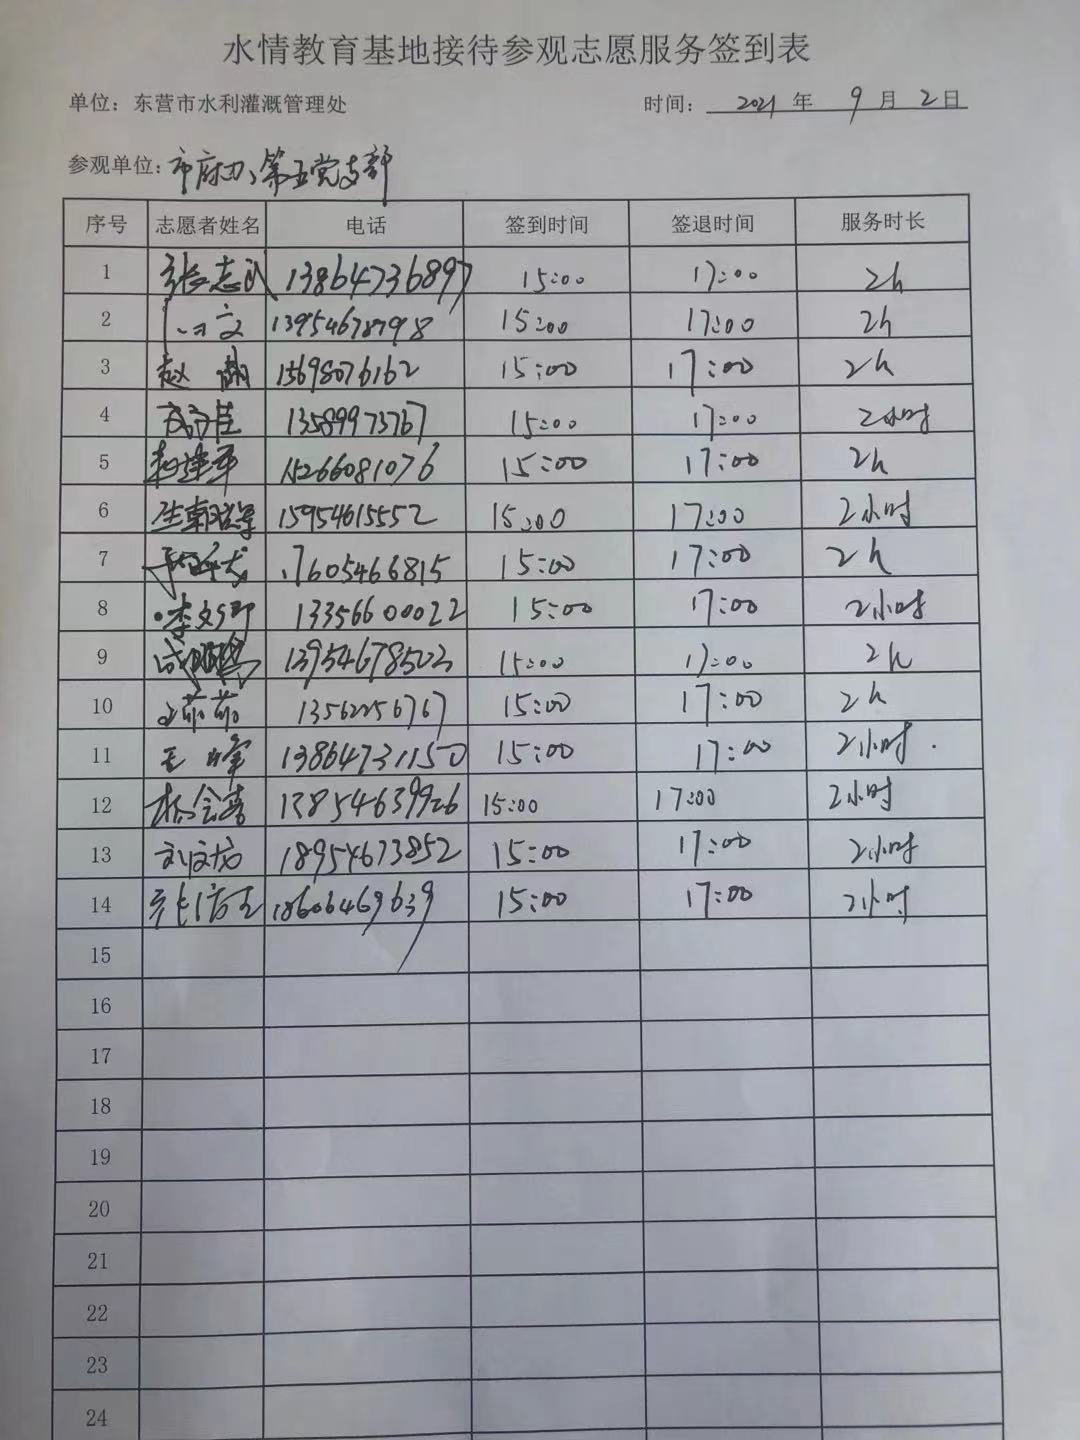 水情教育基地接待参观志愿服务签到表
单位：东营市水利灌溉管理处 时间：2021年9月2日
参观单位：市府办、第五党支部
序号 志愿者姓名 电话 签到时间 签退时间 服务时长
1 张志民 13864736897 15:00 17:00 2h
2 13954678798 15:00 17:00 2h
3 赵 15698076162 15:00 17:00 2h
4 13589973767 15:00 17:00 2小时
5 15266081076 15:00 17:00 2h
6 15954615552 15:00 17:00 2小时
7 17605466815 15:00 17:00 2h
8 李文 13356600022 15:00 17:00 2小时
9 13954678503 15:00 17:00 2h
10 茹茹 13562256767 15:00 17:00 2h
11 王峰 13864731150 15:00 17:00 2小时
12 13854639926 15:00 17:00 2小时
13 刘文龙 18954673852 15:00 17:00 2小时
14 18606469639 15:00 17:00 2小时
15
16
17
18
19
20
21
22
23
24